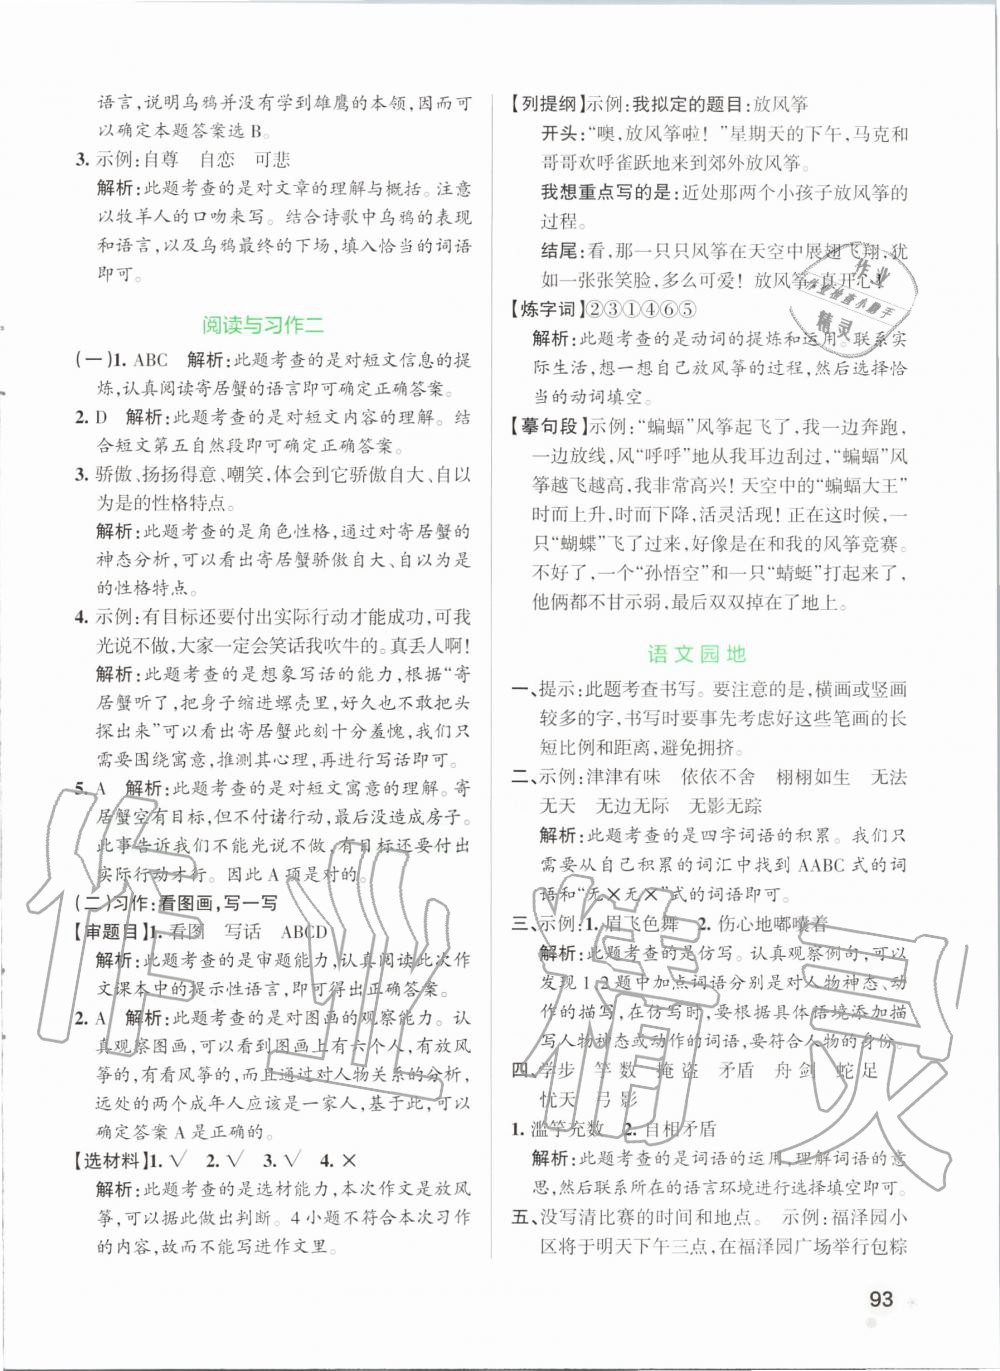 语言,说明乌鸦并没有学到雄鹰的本领,因而可
以确定本题答案选 B。
3. 示例:自尊　自恋　可悲
解析:此题考查的是对文章的理解与概括。注意
以牧羊人的口吻来写。结合诗歌中乌鸦的表现
和语言,以及乌鸦最终的下场,填入恰当的词语
即可。
阅读与习作二
(一)1. ABC　解析:此题考查的是对短文信息的提
炼,认真阅读寄居蟹的语言即可确定正确答案。
2. D　解析:此题考查的是对短文内容的理解。结
合短文第五自然段即可确定正确答案。
3. 骄傲、扬扬得意、嘲笑,体会到它骄傲自大、自以
为是的性格特点。
解析:此题考查的是角色性格,通过对寄居蟹的
神态分析,可以看出寄居蟹骄傲自大、自以为是
的性格特点。
4. 示例:有目标还要付出实际行动才能成功,可我
光说不做,大家一定会笑话我吹牛的。真丢人啊!
解析:此题考查的是想象写话的能力,根据“寄
居蟹听了,把身子缩进螺壳里,好久也不敢把头
探出来”可以看出寄居蟹此刻十分羞愧,我们只
需要围绕寓意,推测其心理,再进行写话即可。
5. A　解析:此题考查的是对短文寓意的理解。寄
居蟹空有目标,但不付诸行动,最后没造成房子。
此事告诉我们不能光说不做,有目标还要付出
实际行动才行。因此 A 项是对的。
(二)习作:看图画,写一写
【审题目】1. 看图　写话　ABCD
解析:此题考查的是审题能力,认真阅读此次作
文课本中的提示性语言,即可得出正确答案。
2. A　解析:此题考查的是对图画的观察能力。认
真观察图画,可以看到图画上有六个人,有放风
筝的,有看风筝的,而且通过对人物关系的分析,
远处的两个成年人应该是一家人,基于此,可以
确定答案 A 是正确的。
【选材料】1. √　2. √　3. √　4. ×
解析:此题考查的是选材能力,本次作文是放风
筝,可以据此做出判断。4 小题不符合本次习作
的内容,故而不能写进作文里。
【列提纲】示例:我拟定的题目:放风筝
开头:“噢,放风筝啦！”星期天的下午,马克和
哥哥欢呼雀跃地来到郊外放风筝。
我想重点写的是:近处那两个小孩子放风筝的
过程。
结尾:看,那一只只风筝在天空中展翅飞翔,犹
如一张张笑脸,多么可爱！放风筝,真开心!
【炼字词】②③①④⑥⑤
解析:此题考查的是动词的提炼和运用。联系实
际生活,想一想自己放风筝的过程,然后选择恰
当的动词填空。
【摹句段】示例:“蝙蝠”风筝起飞了,我一边奔跑,
一边放线,风“呼呼”地从我耳边刮过,“蝙蝠”风
筝越飞越高,我非常高兴！天空中的“蝙蝠大王”
时而上升,时而下降,活灵活现！正在这时候,一
只“蝴蝶”飞了过来,好像是在和我的风筝竞赛。
不好了,一个“孙悟空”和一只“蜻蜓”打起来了,
他俩都不甘示弱,最后双双掉在了地上。
语文园地
一、提示:此题考查书写。要注意的是,横画或竖画
较多的字,书写时要事先考虑好这些笔画的长
短比例和距离,避免拥挤。
二、示例:津津有味　依依不舍　栩栩如生　无法
无天　无边无际　无影无踪
解析:此题考查的是四字词语的积累。我们只
需要从自己积累的词汇中找到 AABC 式的词
语和“无×无×”式的词语即可。
三、示例:1. 眉飞色舞　2. 伤心地嘟囔着
解析:此题考查的是仿写。认真观察例句,可以
发现 1、2 题中加点词语分别是对人物神态、动
作的描写,在仿写时,要根据具体语境添加描
写人物神态或动作的词语,要符合人物的身份。
四、学步　竽数　掩盗　矛盾　舟剑　蛇足
忧天　弓影
1. 滥竽充数　2. 自相矛盾
解析:此题考查的是词语的运用,理解词语的意
思,然后联系所在的语言环境进行选择填空即可。
五、没写清比赛的时间和地点。　示例:福泽园小
区将于明天下午三点,在福泽园广场举行包粽
93
作业
作业检查小助手
精灵
作业精灵